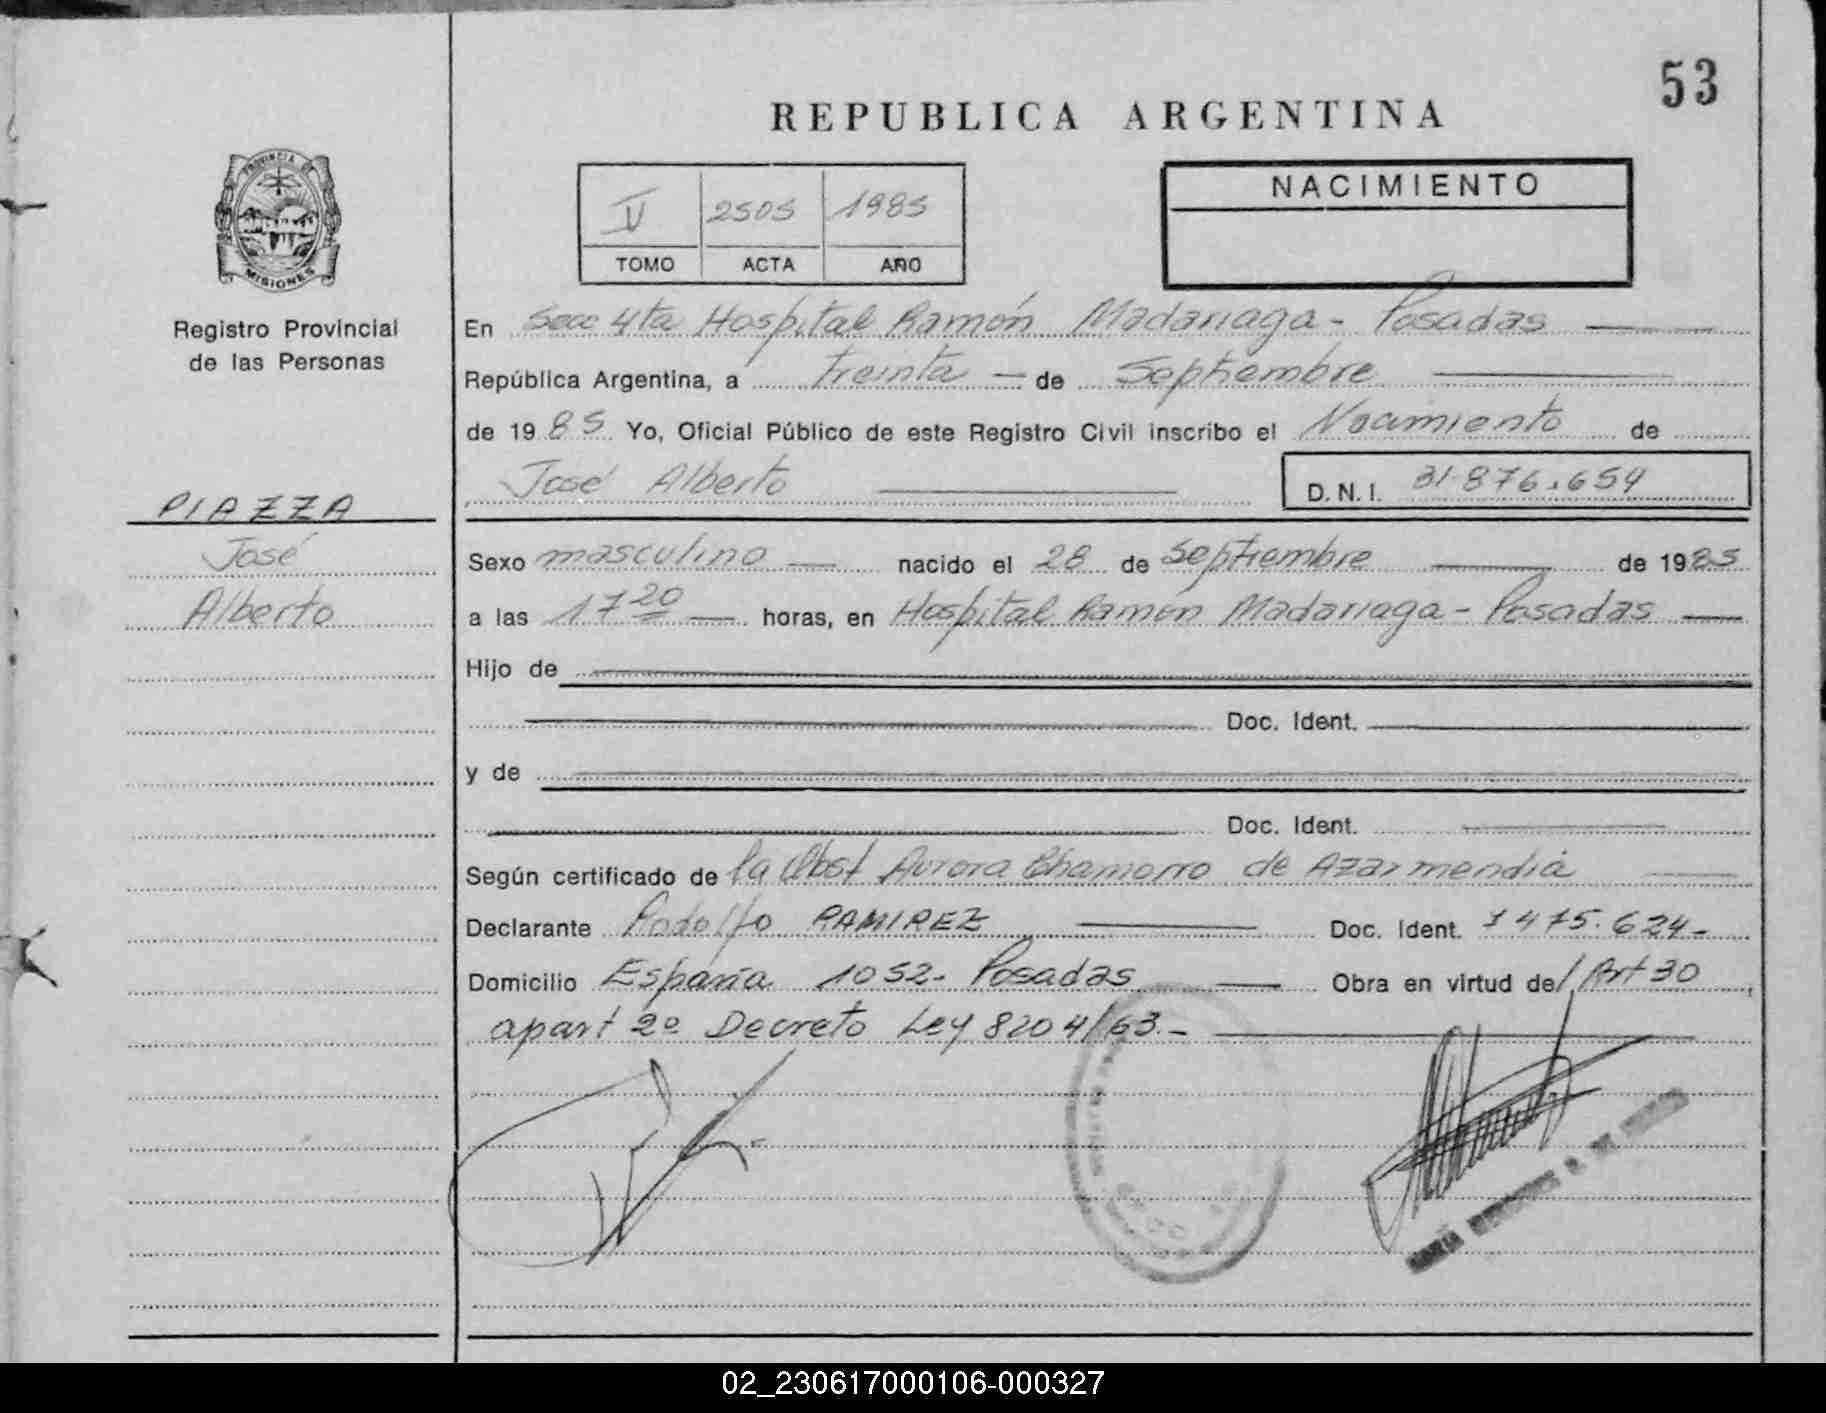 53
REPUBLICA ARGENTINA
PROVINCIA DE
MISIONES
Registro Provincial
de las Personas
2505 1985
TOMO ACTA AÑO
NACIMIENTO
En Secc 4ta Hospital Ramón Madariaga - Posadas
República Argentina, a treinta - de Septiembre
de 1985 Yo, Oficial Público de este Registro Civil inscribo el Nacimiento de
José Alberto D.N.I. 31.876.659
PIAZZA
José
Alberto
Sexo masculino nacido el 28 de Septiembre de 1985
a las 17 20 horas, en Hospital Ramón Madariaga - Posadas
Hijo de
Doc. Ident.
y de
Doc. Ident.
Según certificado de la Obst Aurora Chamorro de Azarmendia
Declarante Rodolfo RAMIREZ Doc. Ident. 7475.624-
Domicilio España 1052- Posadas Obra en virtud del Art 30
apart 2º Decreto Ley 8204/63.-
MARÍA
02_230617000106-000327